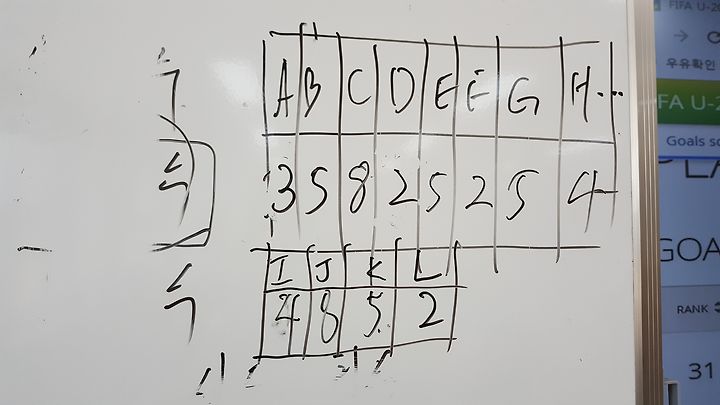 A B C D E F G H...
3 5 8 2 5 2 5 4
I J K L
4 8 5 2
FIFA U-20
우유확인
FA U-2
Goals sc
GOA
RANK
31